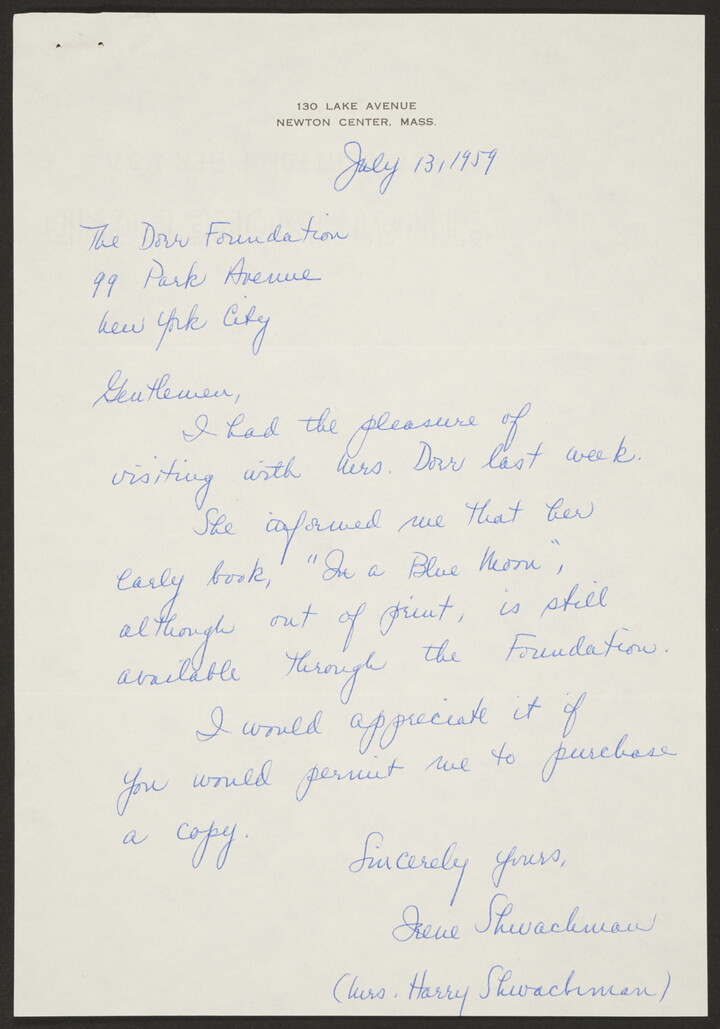 130 LAKE AVENUE
NEWTON CENTER, MASS.
July 13, 1959
The Dorr Foundation
99 Park Avenue
New York City
Gentlemen,
I had the pleasure of
visiting with Mrs. Dorr last week.
She informed me that her
early book, "In a Blue Moon",
although out of print, is still
available through the Foundation.
I would appreciate it if
you would permit me to purchase
a copy.
Sincerely yours,
Irene Shwachman
(Mrs. Harry Shwachman)